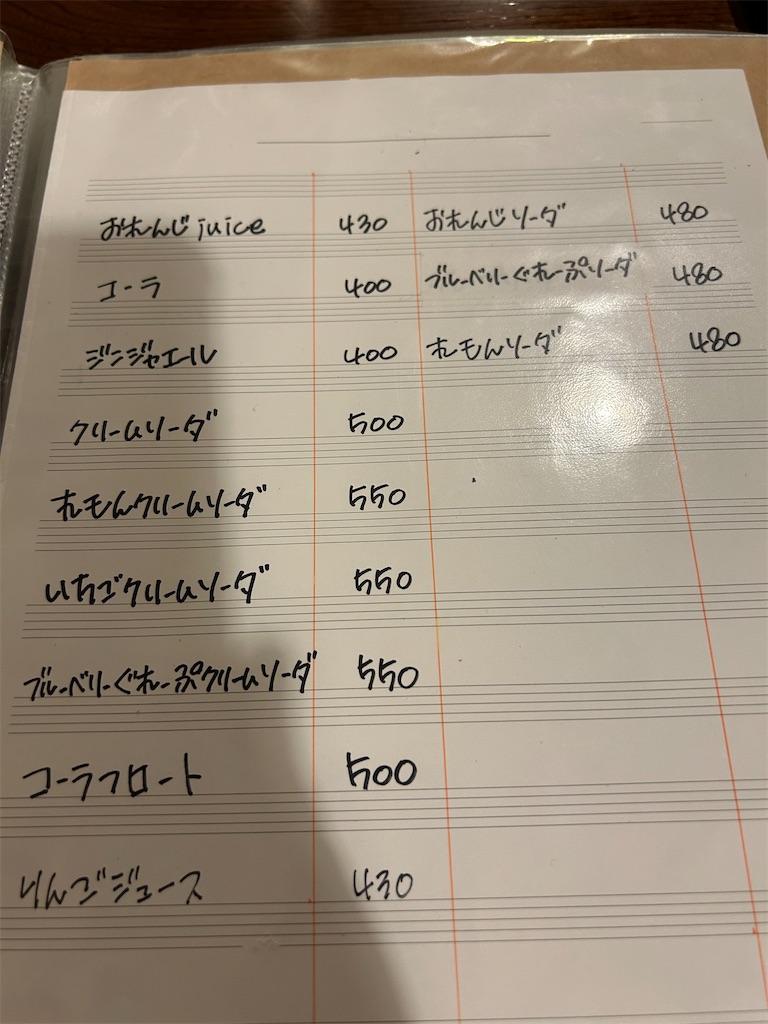 おれんじjuice 430
コーラ 400
ジンジャエール 400
クリームソーダ 500
れもんクリームソーダ 550
いちごクリームソーダ 550
ブルーベリーぐれーぷクリームソーダ 550
コーラフロート 500
りんごジュース 430
おれんじソーダ 480
ブルーベリーぐれーぷソーダ 480
れもんソーダ 480